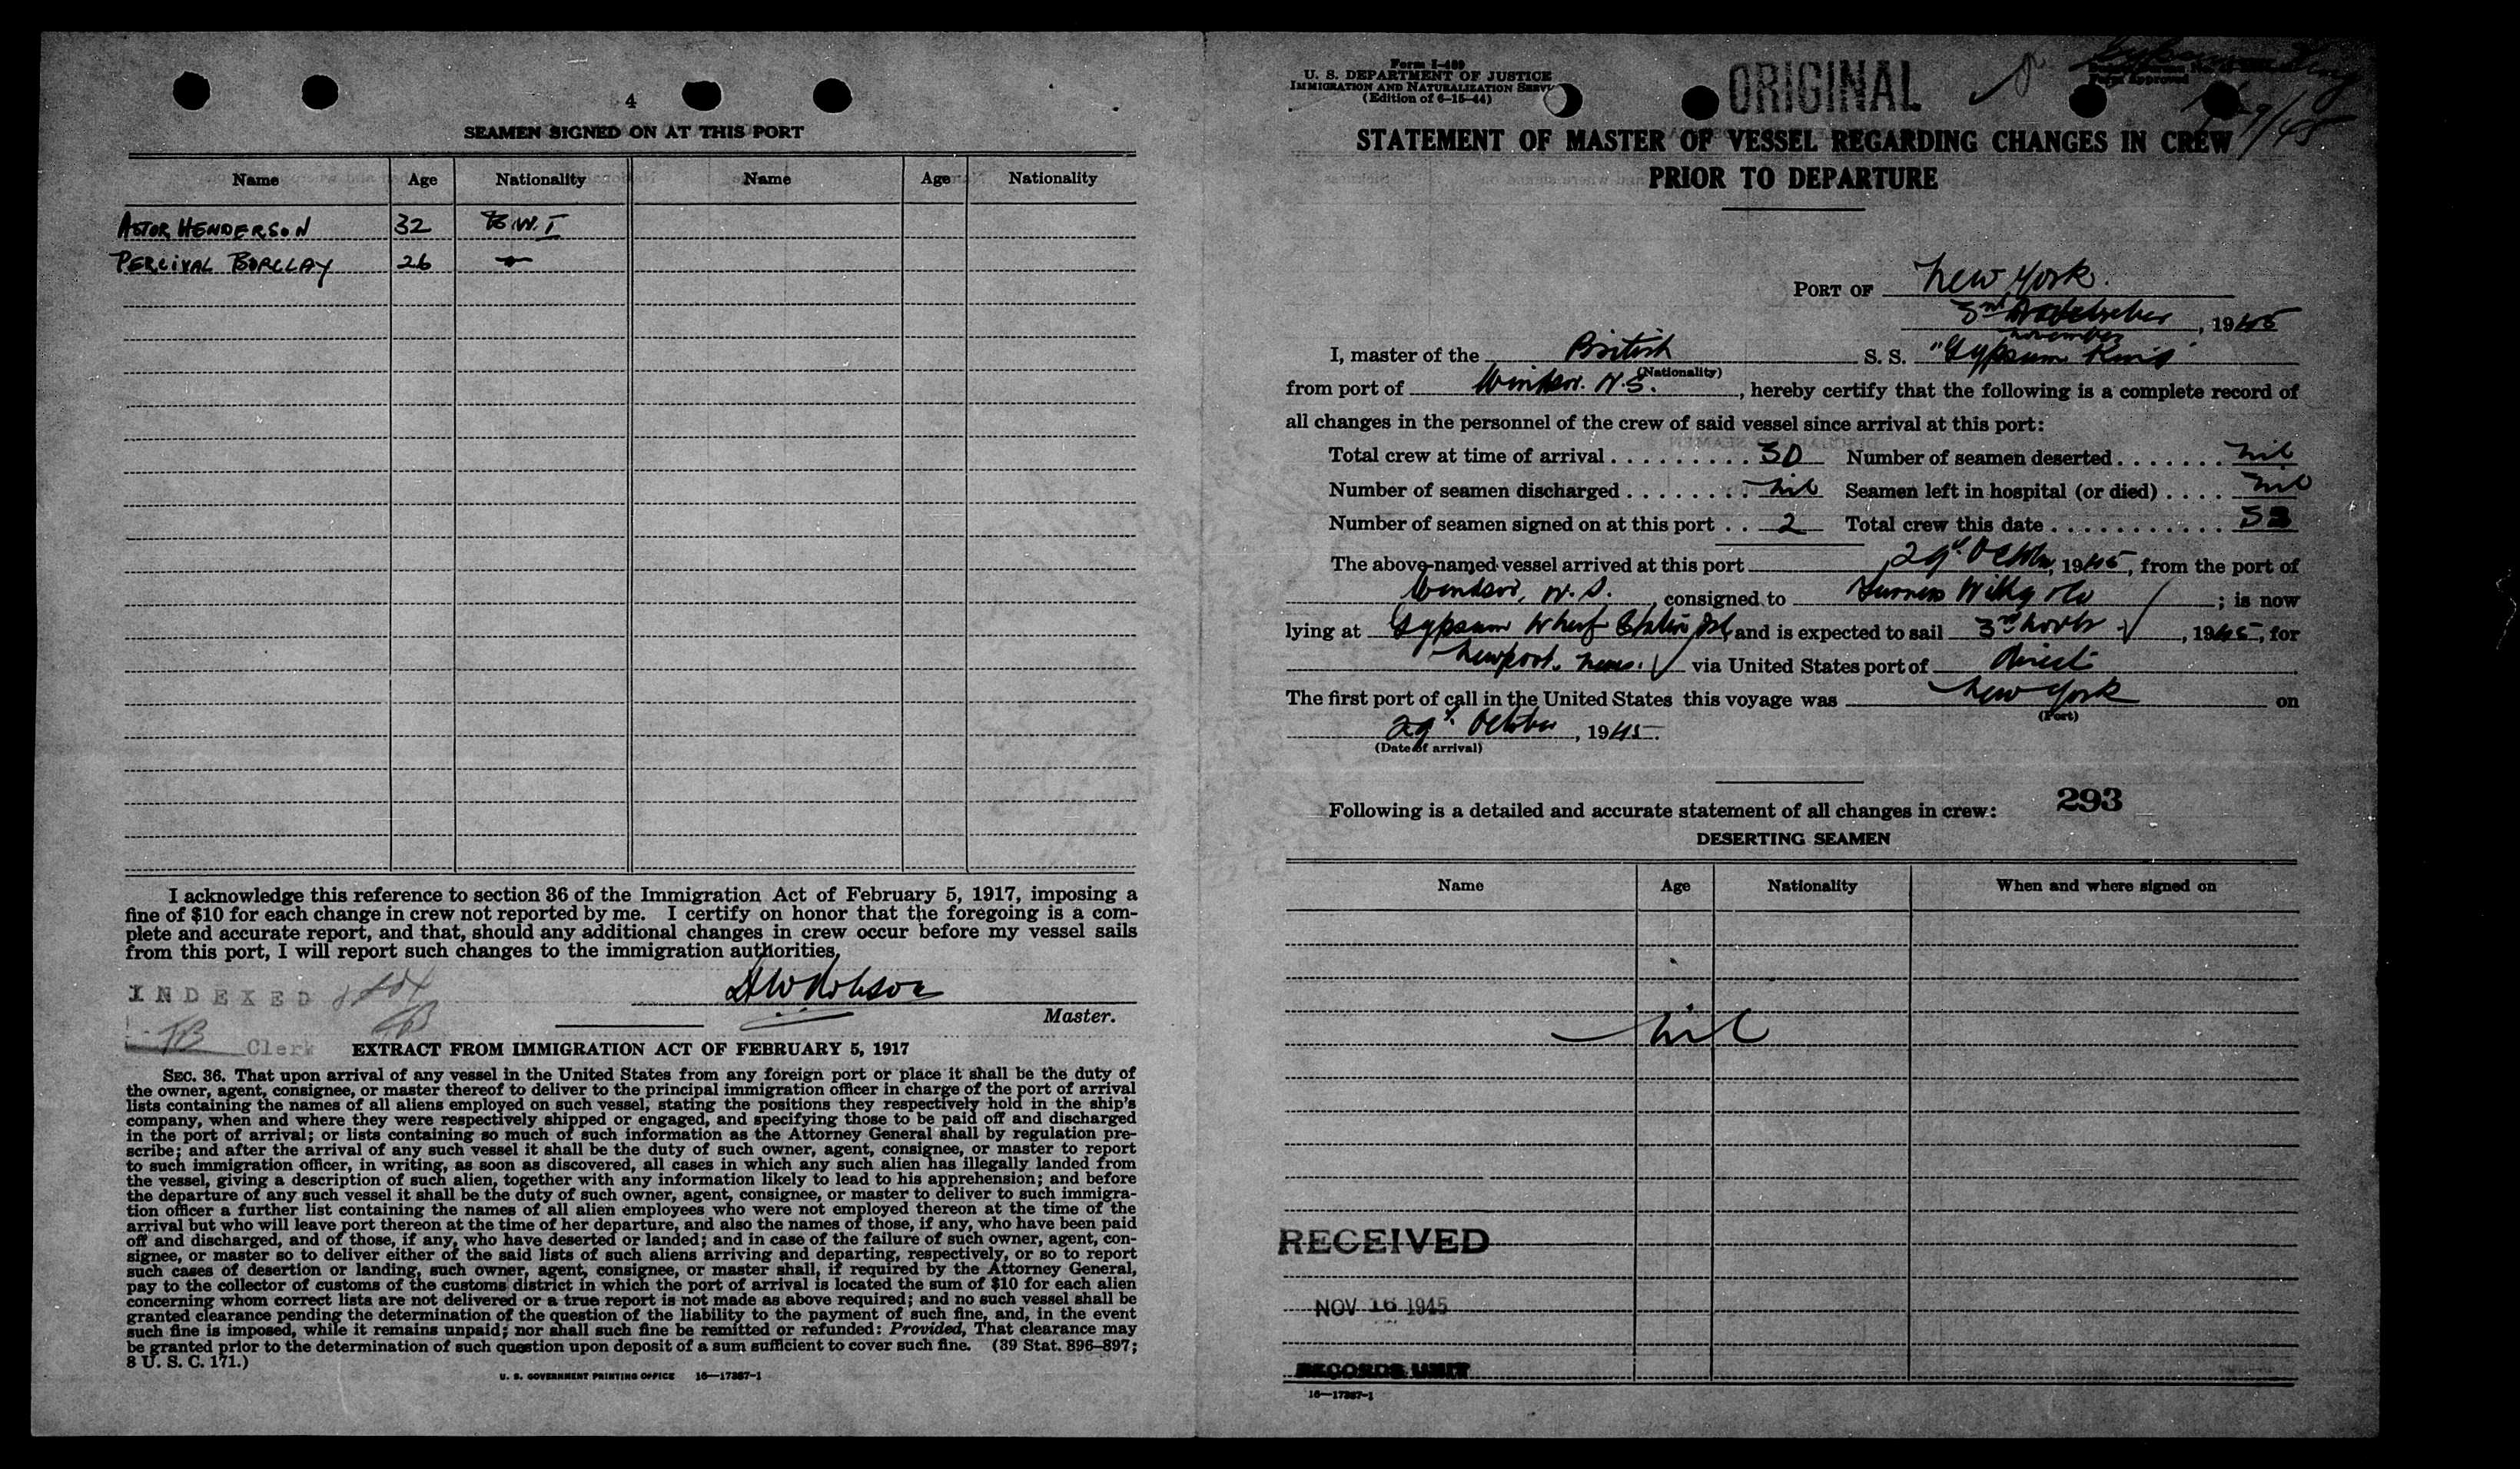 4
SEAMEN SIGNED ON AT THIS PORT
Name Age Nationality Name Age Nationality
ASTOR HENDERSON 32 B.W.I
PERCIVAL BORCLAY 26 "
I acknowledge this reference to section 36 of the Immigration Act of February 5, 1917, imposing a
fine of $10 for each change in crew not reported by me. I certify on honor that the foregoing is a com-
plete and accurate report, and that, should any additional changes in crew occur before my vessel sails
from this port, I will report such changes to the immigration authorities.
INDEXED
Master.
TB Clerk
EXTRACT FROM IMMIGRATION ACT OF FEBRUARY 5, 1917
SEC. 36. That upon arrival of any vessel in the United States from any foreign port or place it shall be the duty of
the owner, agent, consignee, or master thereof to deliver to the principal immigration officer in charge of the port of arrival
lists containing the names of all aliens employed on such vessel, stating the positions they respectively hold in the ship's
company, when and where they were respectively shipped or engaged, and specifying those to be paid off and discharged
in the port of arrival; or lists containing so much of such information as the Attorney General shall by regulation pre-
scribe; and after the arrival of any such vessel it shall be the duty of such owner, agent, consignee, or master to report
to such immigration officer, in writing, as soon as discovered, all cases in which any such alien has illegally landed from
the vessel, giving a description of such alien, together with any information likely to lead to his apprehension; and before
the departure of any such vessel it shall be the duty of such owner, agent, consignee, or master to deliver to such immigra-
tion officer a further list containing the names of all alien employees who were not employed thereon at the time of the
arrival but who will leave port thereon at the time of her departure, and also the names of those, if any, who have been paid
off and discharged, and of those, if any, who have deserted or landed; and in case of the failure of such owner, agent, con-
signee, or master so to deliver either of the said lists of such aliens arriving and departing, respectively, or so to report
such cases of desertion or landing, such owner, agent, consignee, or master shall, if required by the Attorney General,
pay to the collector of customs of the customs district in which the port of arrival is located the sum of $10 for each alien
concerning whom correct lists are not delivered or a true report is not made as above required; and no such vessel shall be
granted clearance pending the determination of the question of the liability to the payment of such fine, and, in the event
such fine is imposed, while it remains unpaid; nor shall such fine be remitted or refunded: Provided, That clearance may
be granted prior to the determination of such question upon deposit of a sum sufficient to cover such fine. (39 Stat. 896–897;
8 U. S. C. 171.)
U. S. GOVERNMENT PRINTING OFFICE 16—17387-1
Form I-489
U. S. DEPARTMENT OF JUSTICE
IMMIGRATION AND NATURALIZATION SERV
(Edition of 6-15-44)
ORIGINAL
STATEMENT OF MASTER OF VESSEL REGARDING CHANGES IN CREW
PRIOR TO DEPARTURE
PORT OF New York.
3rd November, 1945
I, master of the British S. S. "Gypsum King"
(Nationality)
from port of Windsor. N.S., hereby certify that the following is a complete record of
all changes in the personnel of the crew of said vessel since arrival at this port:
Total crew at time of arrival 30 Number of seamen deserted nil
Number of seamen discharged nil Seamen left in hospital (or died) nil
Number of seamen signed on at this port 2 Total crew this date 32
The above-named vessel arrived at this port 29th October, 1945, from the port of
Windsor, N.S. consigned to Furness Withy & Co ; is now
lying at Gypsum Wharf Staten Isl. and is expected to sail 3rd Novbr, 1945, for
Newport. News. via United States port of direct
The first port of call in the United States this voyage was New York on
(Port)
29th October, 1945.
(Date of arrival)
Following is a detailed and accurate statement of all changes in crew: 293
DESERTING SEAMEN
Name Age Nationality When and where signed on
nil
RECEIVED
NOV 16 1945
RECORDS UNIT
16—17387-1